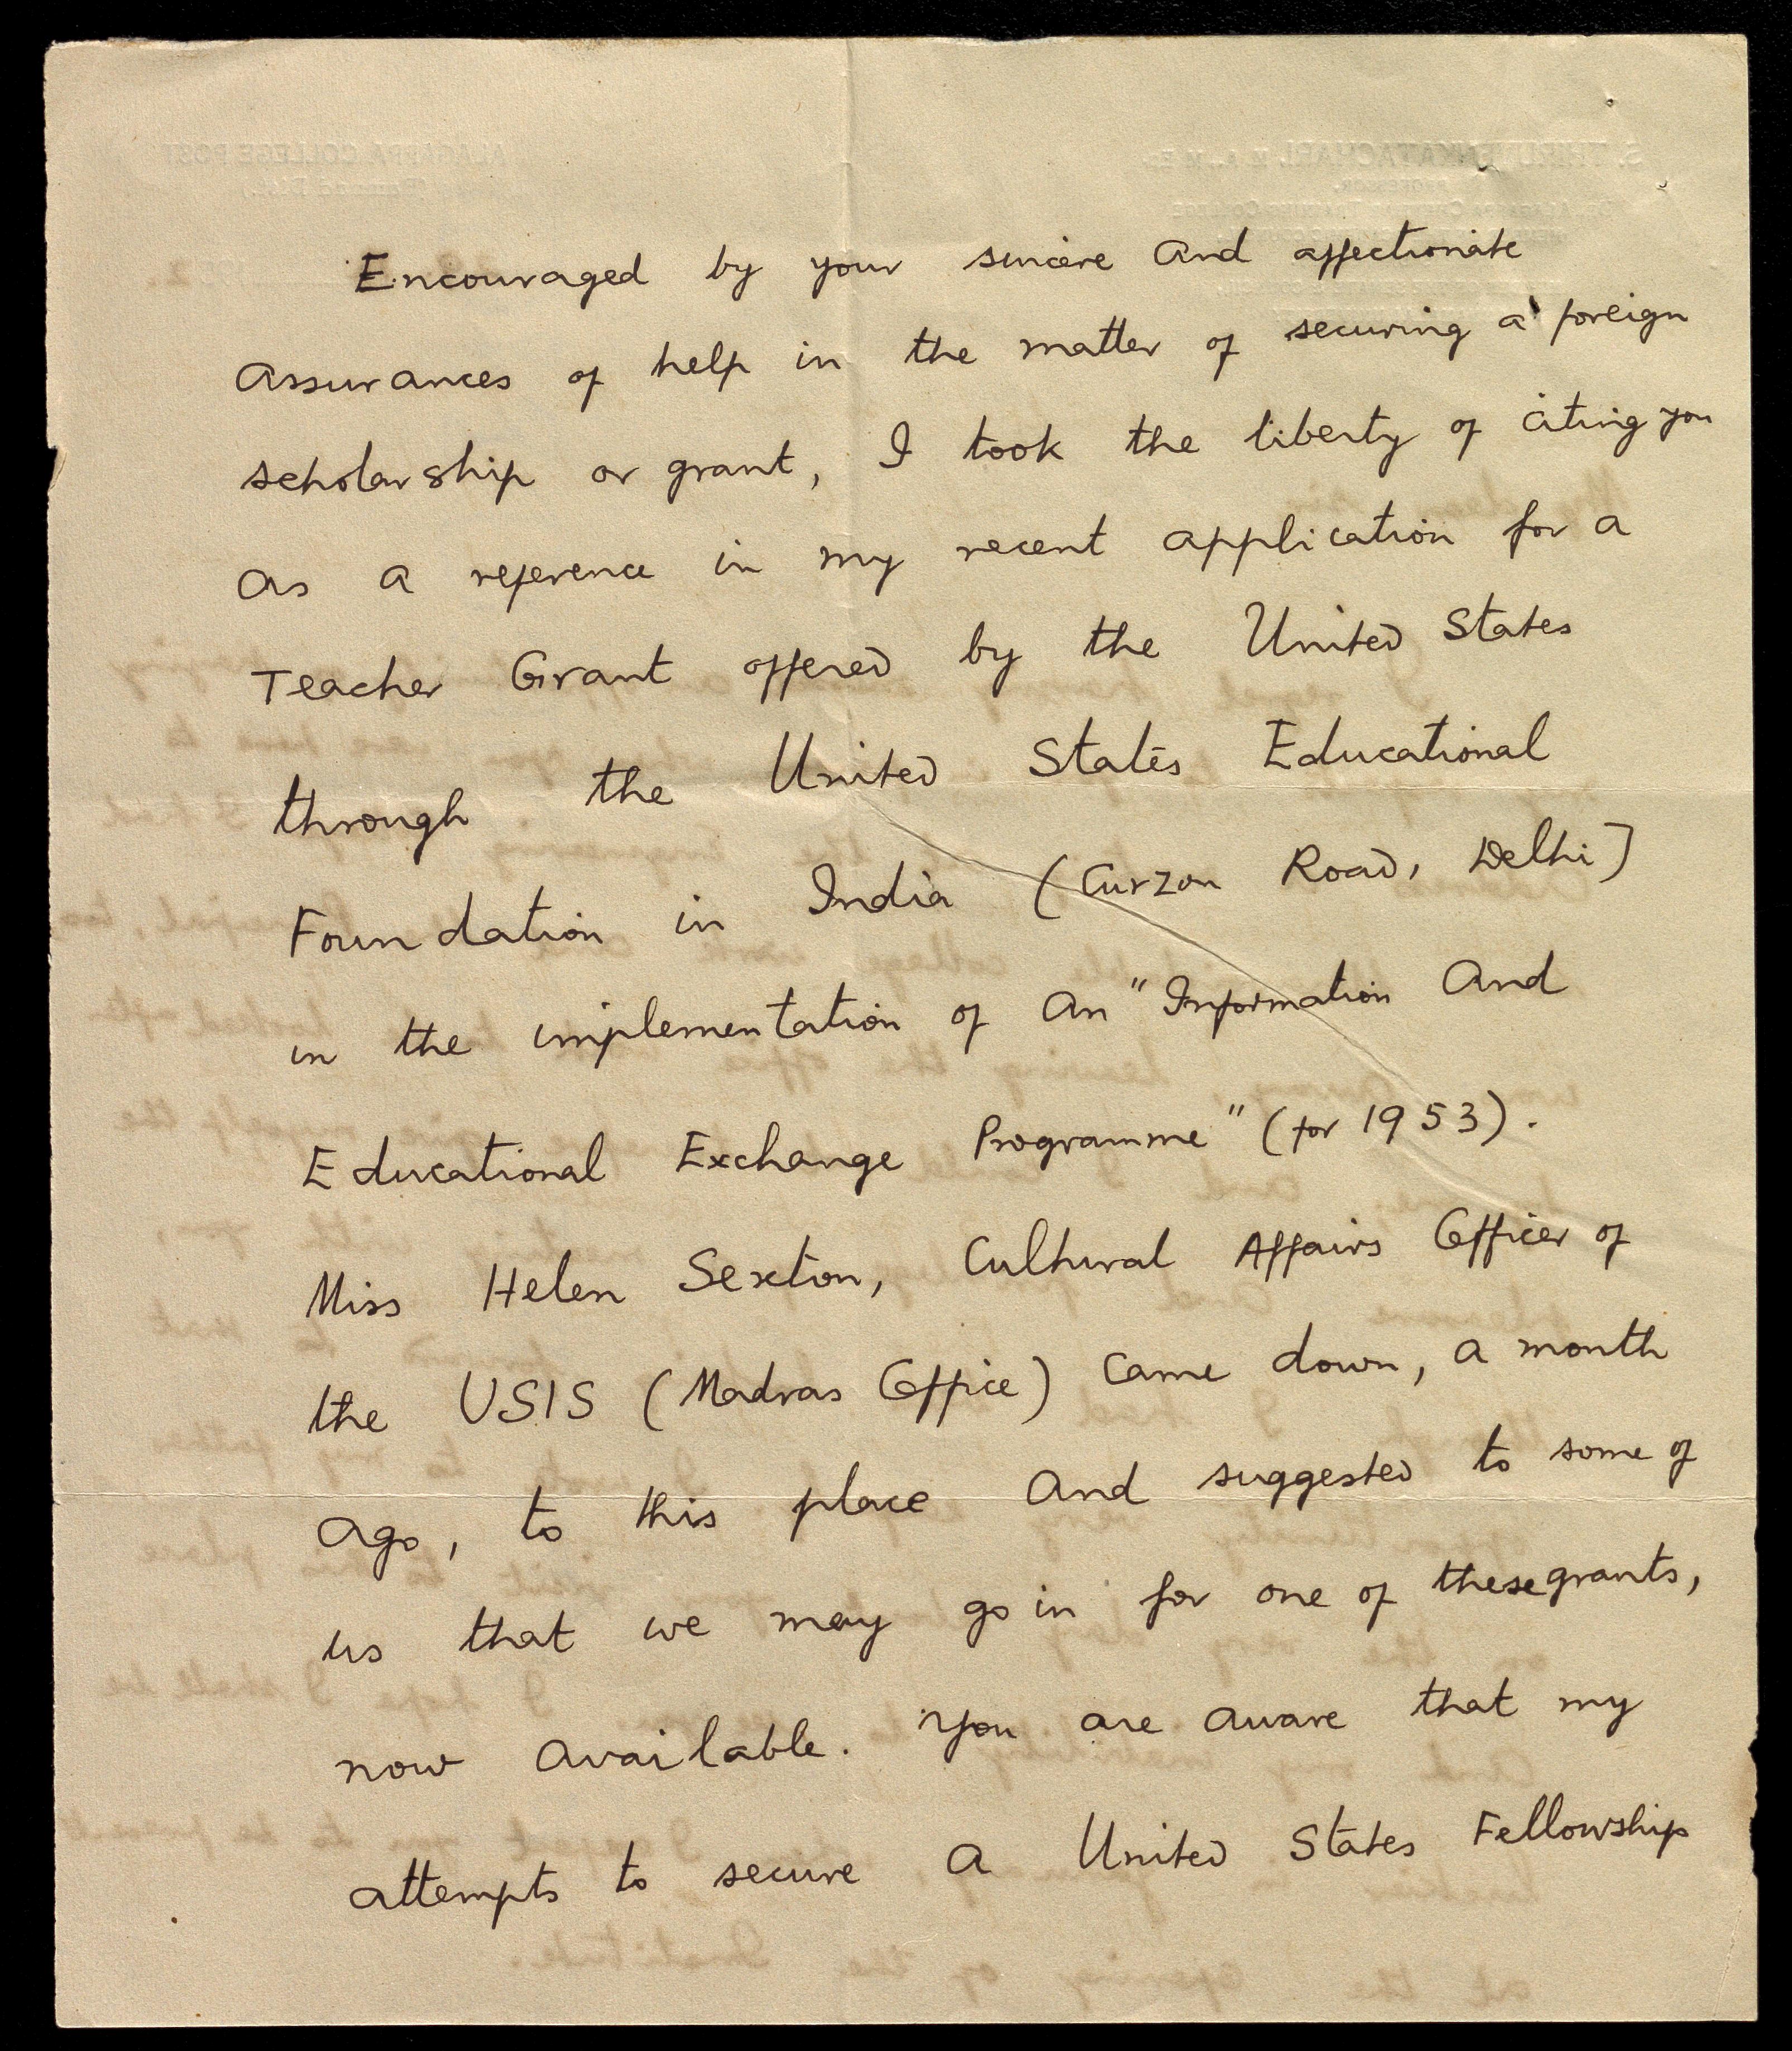 Encouraged by your sincere and affectionate
assurances of help in the matter of securing a foreign
scholarship or grant, I took the liberty of citing you
as a reference in my recent application for a
Teacher Grant offered by the United States
through the United States Educational
Foundation in India (Curzon Road, Delhi)
in the implementation of an "Information and
Educational Exchange Programme" (for 1953).
Miss Helen Sexton, Cultural Affairs Officer of
the USIS (Madras Office) came down, a month
ago, to this place and suggested to some of
us that we may go in for one of these grants,
now available. You are aware that my
attempts to secure a United States Fellowship